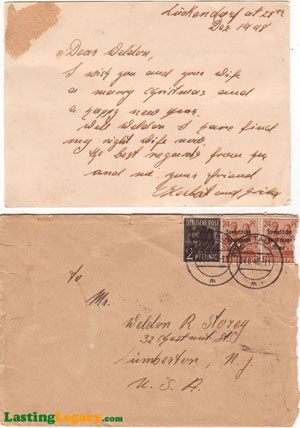 Lückendorf at 28th
Dez 1948
Dear Weldon,
I wish you and your wife
a marry christmas and
a happy new year.
Well Weldon I have find
my right wife now.
the best regards from her
and me your friend
Herbert and
DEUTSCHE POST
2 PFENNIG
24
24
Sowjetische
Sowjetische
To
Mr.
Weldon R Storey
32 Chestnut St
Lumberton, N.J
U.S.A
LastingLegacy.com